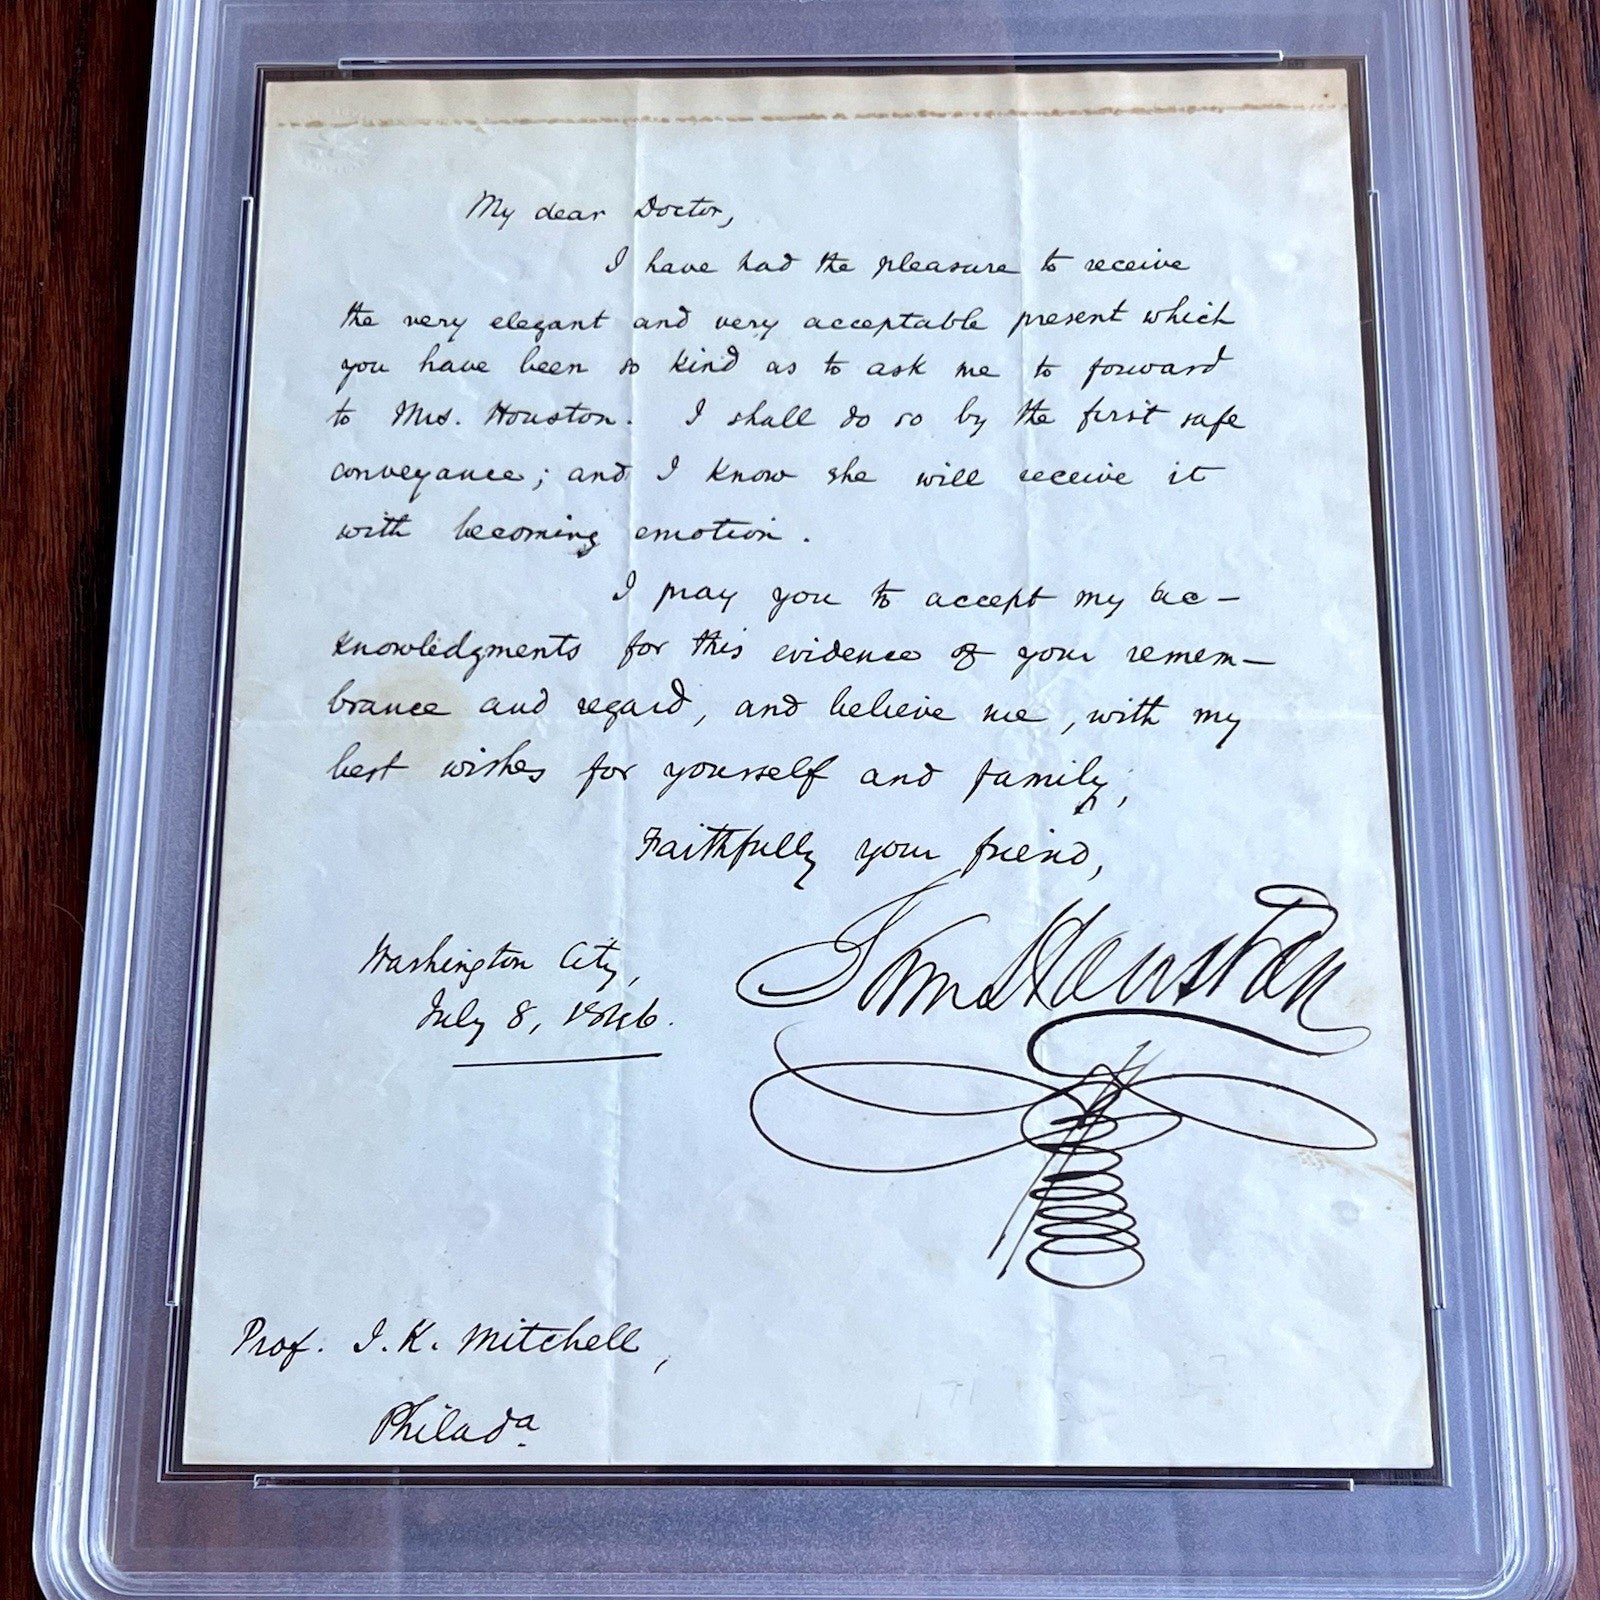 My dear Doctor,
I have had the pleasure to receive
the very elegant and very acceptable present which
you have been so kind as to ask me to forward
to Mrs. Houston. I shall do so by the first safe
conveyance; and I know she will receive it
with becoming emotion.
I pray you to accept my ac-
knowledgments for this evidence of your remem-
brance and regard, and believe me, with my
best wishes for yourself and family,
Faithfully your friend,
Sam Houston
Washington City,
July 8, 1846.
Prof. J. K. Mitchell,
Philada.